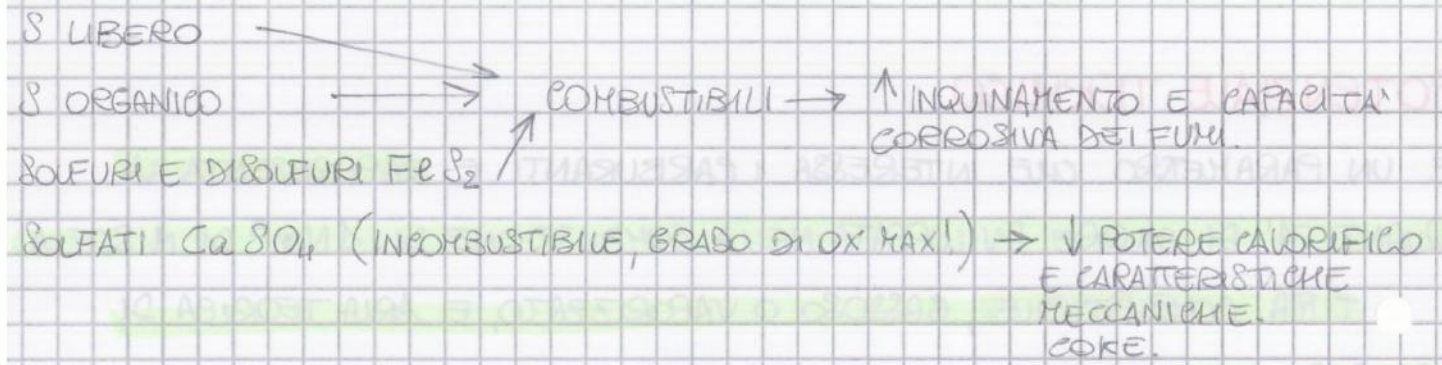 S LIBERO
S ORGANICO → COMBUSTIBILI → ↑ INQUINAMENTO E CAPACITA'
CORROSIVA DEI FUMI.
SOLFURI E DISOLFURI FeS₂
SOLFATI CaSO₄ (INCOMBUSTIBILE, GRADO DI OX MAX!) → ↓ POTERE CALORIFICO
E CARATTERISTICHE
MECCANICHE.
COKE.